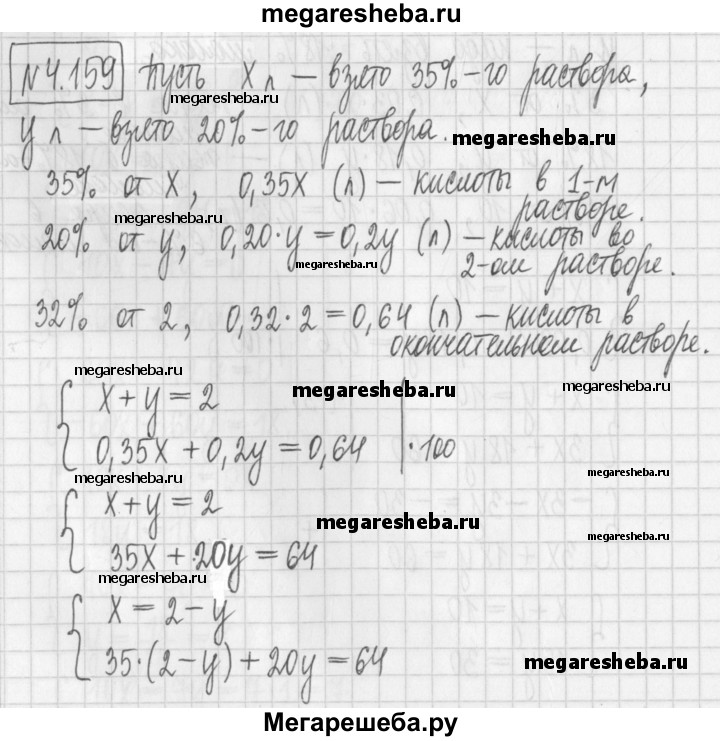 megaresheba.ru
№4.159 Пусть x л — взято 35%-го раствора,
megaresheba.ru
y л — взято 20%-го раствора.
megaresheba.ru
35% от x, 0,35x (л) — кислоты в 1-м
растворе.
megaresheba.ru
20% от y, 0,20·y = 0,2y (л) — кислоты во
2-ом растворе.
megaresheba.ru
32% от 2, 0,32·2 = 0,64 (л) — кислоты в
окончательном растворе.
megaresheba.ru
megaresheba.ru
megaresheba.ru
{ x + y = 2
0,35x + 0,2y = 0,64 | ·100
megaresheba.ru
megaresheba.ru
{ x + y = 2
megaresheba.ru
35x + 20y = 64
megaresheba.ru
megaresheba.ru
{ x = 2 − y
35·(2−y) + 20y = 64
megaresheba.ru
Мегарешеба.ру